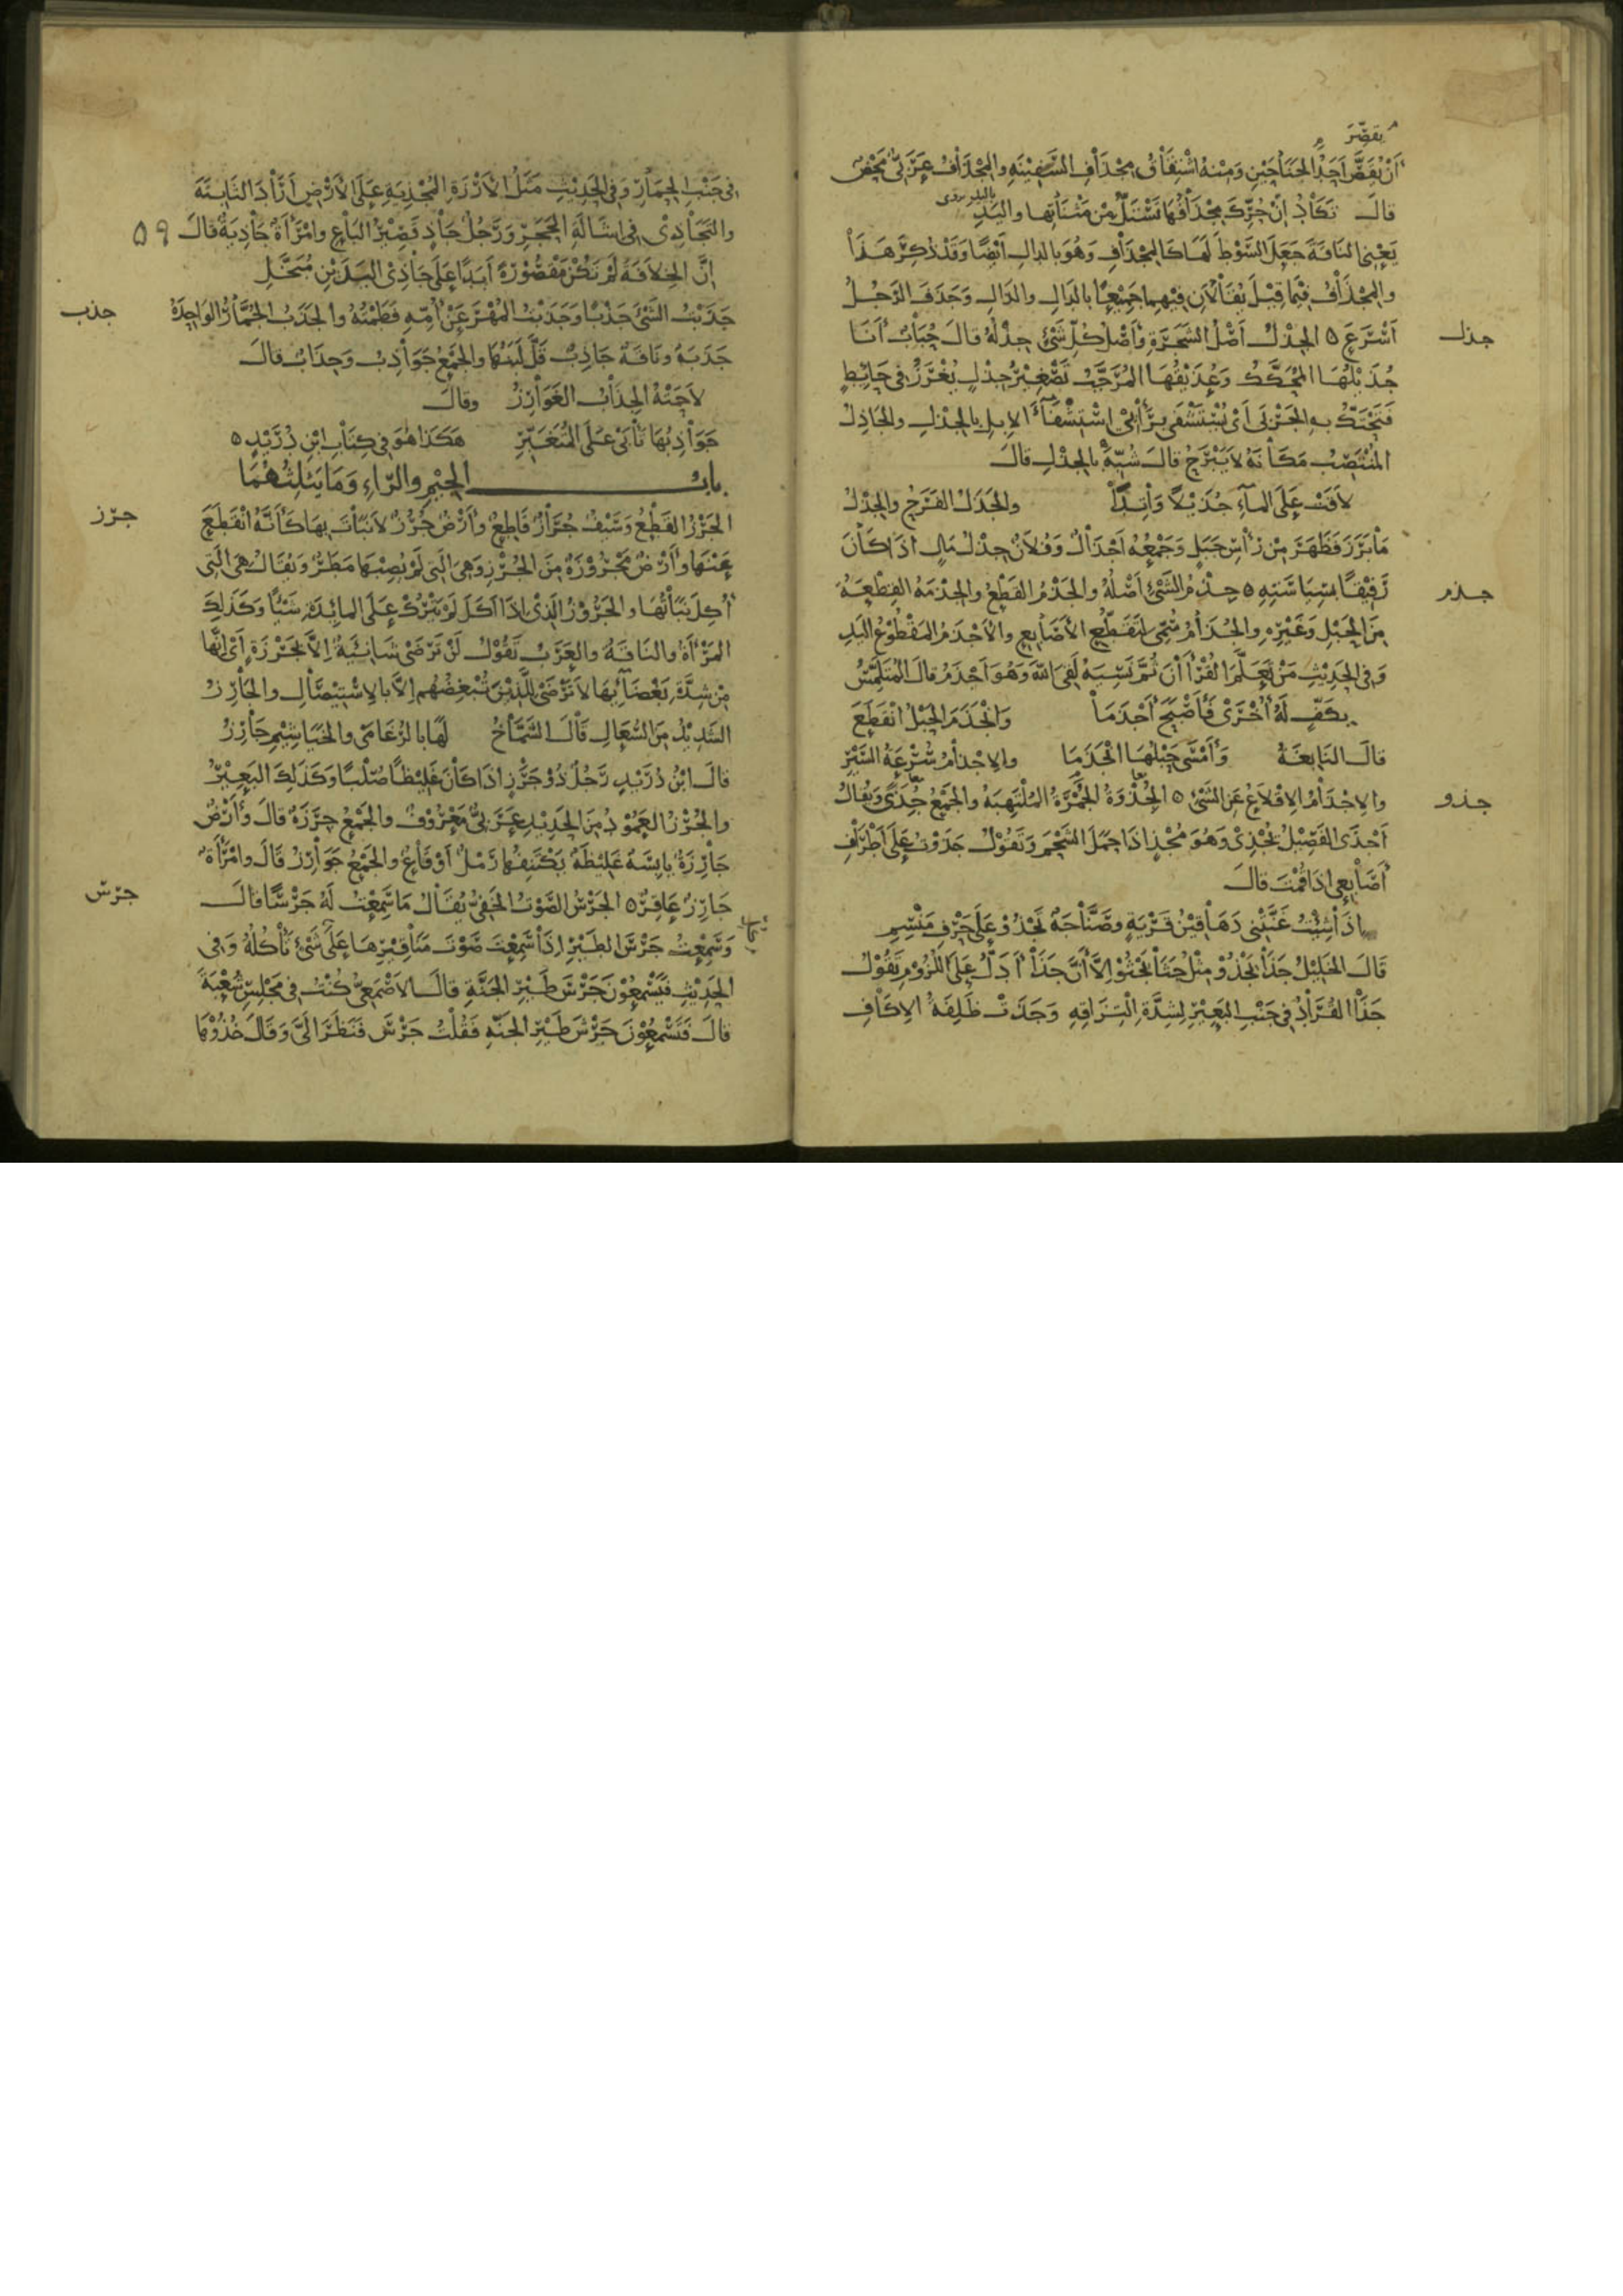 يقصّر
أَنْ يَقُصَّ أَحَدُ الجَنَاحَيْنِ وَمِنْهُ اشْتِقَاقُ مِجْدَافِ السَّفِيْنَةِ والمِجْدَافُ عَرَبِيٌّ مَحْضٌ
قالَ تَكَادُ إِنْ حُرِّكَ مِجْدَافُهَا تَنْسَلُّ مِنْ مَثْنَاتِهَا واليَدِ
يَعْنِي النَاقَةَ جَعَلَ السَّوْطَ لَهَا كَالمِجْدَافِ وَهُوَ بالدالِ أَيْضًا وَقَدْ ذُكِرَ هَذَا
والمِجْذَافُ فِيْمَا قِيْلَ يُقَالَانِ فِيْهِمَا جَمِيْعًا بالدَالِ والذَالِ وَجَذَفَ الرَجُلُ
أَسْرَعَ ه الجِذْلُ أَصْلُ الشَّجَرَةِ وَأَصْلُ كُلِّ شَيْءٍ جِذْلُهُ قالَ حُبَابٌ أَنَا
جذل
جُذَيْلُهَا المُحَكَّكُ وَعُذَيْقُهَا المُرَجَّبُ تَصْغِيْرُ جِذْلٍ يُغْرَزُ فِي حَائِطٍ
فَتَحْتَكُّ بِهِ الجَرْبَى أَيْ يُسْتَشْفَى بِرَأْيِيْ اسْتِشْفَاءَ الإِبِلِ بِالجِذْلِ والجَاذِلُ
المُنْتَصِبُ مَكَانَهُ لَا يَبْرَحُ قالَ شُبِّهَ بِالجِذْلِ قالَ
لَاقَتْ عَلَى المَاءِ جُذَيْلًا وَاتِدًا والجَذَلُ الفَرَحُ والجِذْلُ
مَا بَرَزَ فَظَهَرَ مِنْ رَأْسِ جَبَلٍ وَجَمْعُهُ أَجْذَالٌ وَفُلَانٌ جِذْلُ مَالٍ إِذَا كَانَ
رَفِيْقًا بِسِيَاسَتِهِ ه جِذْمُ الشَّيْءِ أَصْلُهُ والجَذْمُ القَطْعُ والجِذْمَةُ القِطْعَةُ
جذم
مِنَ الحَبْلِ وَغَيْرِهِ والجُذَامُ سُمِّيَ لِتَقَطُّعِ الأَصَابِعِ والأَجْذَمُ المَقْطُوْعُ اليَدِ
وَفِي الحَدِيْثِ مَنْ تَعَلَّمَ القُرْاٰنَ ثُمَّ نَسِيَهُ لَقِيَ اللّٰهَ وَهُوَ أَجْذَمُ قالَ المُتَلَمِّسُ
بِكَفٍّ لَهُ أُخْرَى فَأَصْبَحَ أَجْذَمَا وَانْجَذَمَ الحَبْلُ انْقَطَعَ
قالَ النَابِغَةُ وَأَمْسَى حَبْلُهَا انْجَذَمَا والإِجْذَامُ سُرْعَةُ السَّيْرِ
والإِجْذَامُ الإِقْلَاعُ عَنِ الشَّيْءِ ه الجُذْوَةُ الجَمْرَةُ المُلْتَهِبَةُ والجَمْعُ جُذًى وَيُقَالُ
جذو
أَجْذَى الفَصِيْلُ يُجْذِيْ وَهُوَ مُجْذٍ إِذَا حَمَلَ الشَّحْمَ وَتَقُوْلُ جَذَوْتُ عَلَى أَطْرَافِ
أَصَابِعِي إِذَا قُمْتَ قالَ
إِذَا شِئْتُ غَنَّتْنِي دَهَاقِيْنُ قَرْيَةٍ وَصَنَّاجَةٌ تَجْذُوْ عَلَى حَرْفِ مَنْسِمِ
قَالَ الخَلِيْلُ جَذَا يَجْذُوْ مِثْلُ جَثَا يَجْثُوْ إِلَّا أَنَّ جَذَا أَدَلُّ عَلَى اللُّزُوْمِ تَقُوْلُ
جَذَا القُرَادُ فِي جَنْبِ البَعِيْرِ لِشِدَّةِ الْتِزَاقِهِ وَجَذَتْ ظَلِفَةُ الإِكَافِ
فِي جَنْبِ الحِمَارِ وَفِي الحَدِيْثِ مَثَلُ الأَرْزَةِ المُجْذِيَةِ عَلَى الأَرْضِ أَرَادَ الثَابِتَةَ
والتَجَاذِيْ فِي إِشَالَةِ الحَجَرِ وَرَجُلٌ جَاذٍ قَصِيْرُ البَاعِ وامْرَأَةٌ جَاذِيَةٌ قالَ
٥٩
إِنَّ الخِلَافَةَ لَمْ تَكُنْ مَقْصُوْرَةً أَبَدًا عَلَى جَاذِيْ اليَدَيْنِ مُبَخَّلِ
جَذَبْتُ الشَّيْءَ جَذْبًا وَجَذَبْتُ المُهْرَ عَنْ أُمِّهِ فَطَمْتُهُ والجَذَبُ الجُمَّارُ الوَاحِدَةُ
جذب
جَذَبَةٌ وَنَاقَةٌ جَاذِبٌ قَلَّ لَبَنُهَا والجَمْعُ جَوَاذِبُ وَجِذَابٌ قالَ
الجِذَابُ الغَوَارِزُ وقالَ
جَوَاذِبُهَا تَأْبَى عَلَى المُتَغَبِّرِ هَكَذَا هُوَ فِي كِتَابِ ابْنِ دُرَيْدٍ ه
بابُ الجِيْمِ والرّاءِ وَمَا يَثْلِثُهُمَا
الجَرْزُ القَطْعُ وَسَيْفٌ جُرَازٌ قَاطِعٌ وَأَرْضٌ جُرُزٌ لَا نَبَاتَ بِهَا كَأَنَّهُ انْقَطَعَ
جرز
عَنْهَا وَأَرْضٌ مَجْرُوْزَةٌ مِنَ الجُرُزِ وَهِيَ الَّتِي لَمْ يُصِبْهَا مَطَرٌ وَيُقَالُ هِيَ الَّتِي
أُكِلَ نَبَاتُهَا والجَرُوْزُ الَّذِيْ إِذَا أَكَلَ لَمْ يَتْرُكْ عَلَى المائِدَةِ شَيْئًا وَكَذَلِكَ
المَرْأَةُ والنَاقَةُ والعَرَبُ تَقُوْلُ لَنْ تَرْضَى شَانِئَةٌ إِلَّا بِجَرْزَةٍ أَيْ إِنَّهَا
مِنْ شِدَّةِ بَغْضَائِهَا لَا تَرْضَى لِلَّذِيْنَ تُبْغِضُهُمْ إِلَّا بالإِسْتِيْصَالِ والجَارِزُ
الشَّدِيْدُ مِنَ السُّعَالِ قَالَ الشَّمَّاخُ لَهَا بالرُغَامَى والخَيَاشِيْمِ جَارِزُ
قالَ ابْنُ دُرَيْدٍ رَجُلٌ ذُوْ جَرَزٍ إِذَا كَانَ غَلِيْظًا صُلْبًا وَكَذَلِكَ البَعِيْرُ
والجُرْزُ العَمُوْدُ مِنَ الحَدِيْدِ عَرَبِيٌّ مَعْرُوْفٌ والجَمْعُ جِرَزَةٌ قَالَ وَأَرْضٌ
جَارِزَةٌ يابِسَةٌ غَلِيْظَةٌ يَكْتَنِفُهَا رَمْلٌ أَوْ قَاعٌ والجَمْعُ جَوَارِزُ قَالَ وامْرَأَةٌ
جَارِزٌ عَاقِرٌ ه الجَرْسُ الصَّوْتُ الخَفِيُّ يُقَالُ مَا سَمِعْتُ لَهُ جَرْسًا قالَ
جرس
وَسَمِعْتُ جَرْسَ الطَيْرِ إِذَا سَمِعْتَ صَوْتَ مَنَاقِيْرِهَا عَلَى شَيْءٍ تَأْكُلُهُ وَفِي
الحَدِيْثِ فَيَسْمَعُوْنَ جَرْسَ طَيْرِ الجَنَّةِ قالَ الأَصْمَعِيُّ كُنْتُ فِي مَجْلِسِ شُعْبَةَ
قالَ فَتَسْمَعُوْنَ جَرْشَ طَيْرِ الجَنَّةِ فَقُلْتُ جَرْسَ فَنَظَرَ إِلَيَّ وَقَالَ خُذُوْهَا